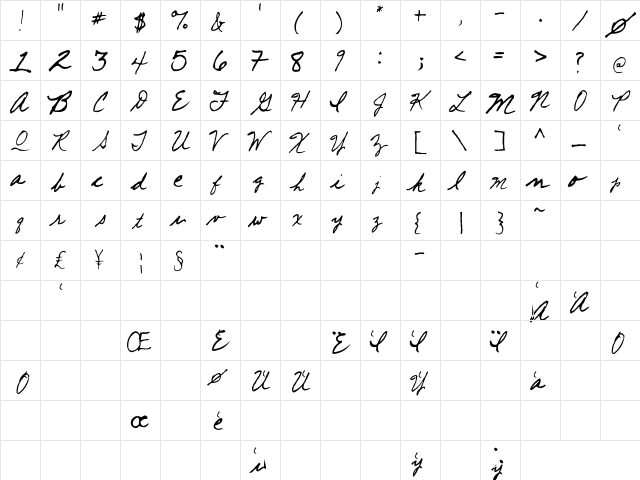 ! " # $ % & ' ( ) * + , - . / Ø
1 2 3 4 5 6 7 8 9 : ; < = > ? @
A B C D E F G H I J K L M N O P
Q R S T U V W X Y Z [ \ ] ^ _ `
a b c d e f g h i j k l m n o p
q r s t u v w x y z { | } ~
¢ £ ¥ ¦ § ¨ ¯
Œ E Ë Ì Í Ï O
O ø Y à
œ è
ÿ